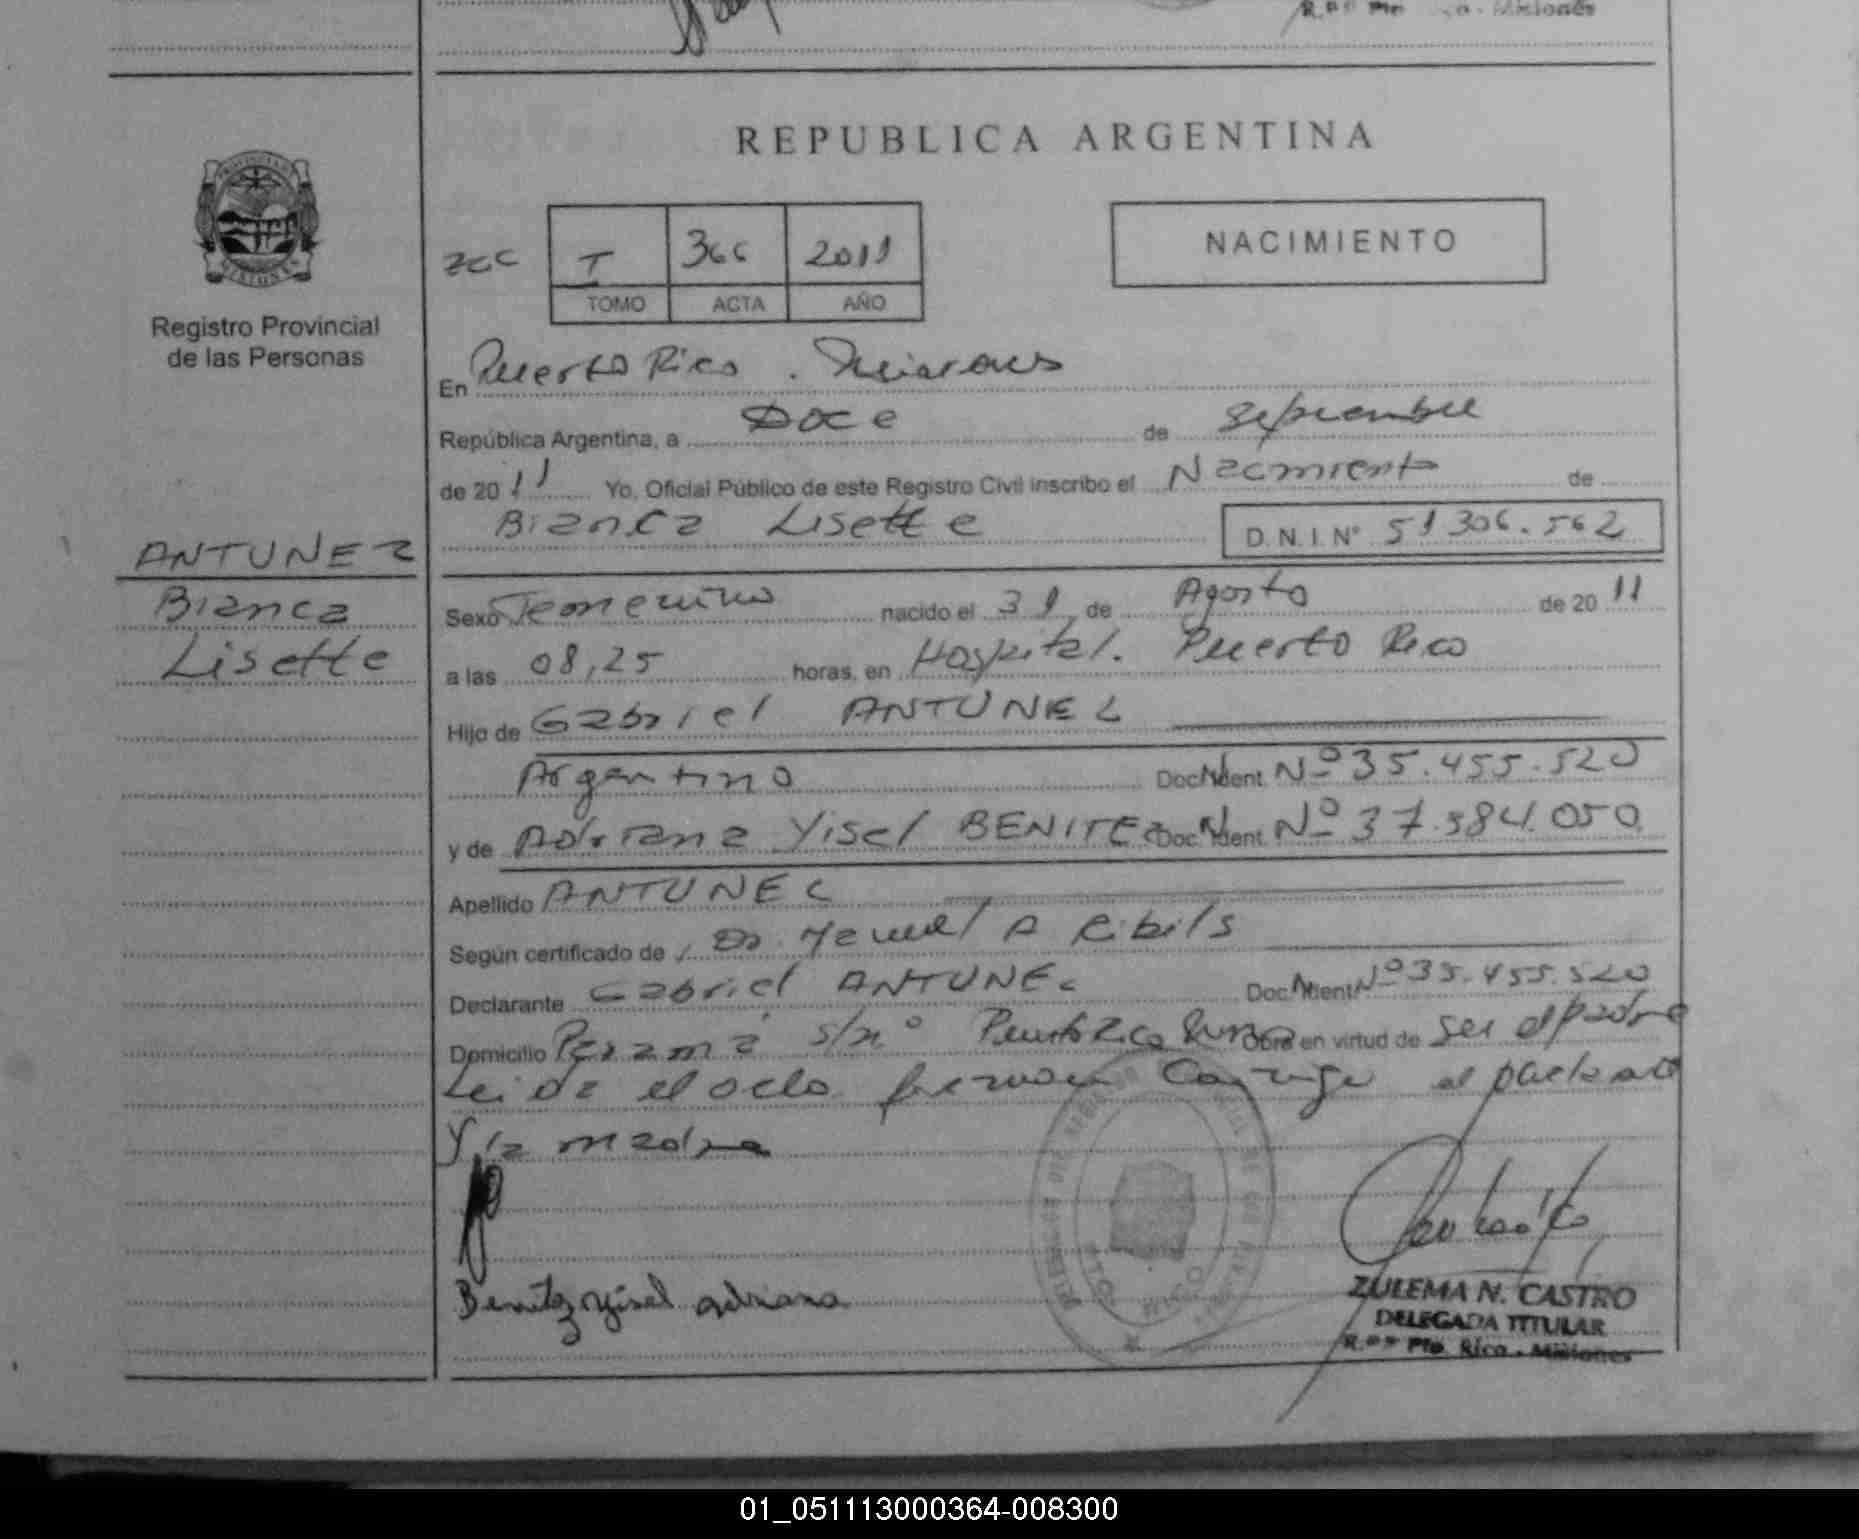 R.P.P Pto Rico - Misiones
REPUBLICA ARGENTINA
NACIMIENTO
I 366 2011
TOMO ACTA AÑO
Registro Provincial
de las Personas
En Puerto Rico . Misiones
República Argentina, a Doce de Septiembre
de 2011 Yo, Oficial Público de este Registro Civil inscribo el Nacimiento de
Bianca Lisette D.N.I. Nº 51306.562
ANTUNEZ
Bianca
Lisette
Sexo Femenino nacido el 31 de Agosto de 2011
a las 08,25 horas, en Hospital. Puerto Rico
Hijo de Gabriel ANTUNEZ
Argentino Doc. Ident. Nº 35.455.520
y de Adriana Yisel BENITEZ Doc. Ident. Nº 37.584.050
Apellido ANTUNEZ
Según certificado de Dr. A Ribils
Declarante Gabriel ANTUNEZ Doc. Ident. Nº 35.455.520
Domicilio Panamá s/nº Puerto Rico Obra en virtud de ser el padre
Leida el acta firman conmigo el padre
Y la madre
Benitez yisel adriana
ZULEMA N. CASTRO
DELEGADA TITULAR
R.P.P Pto. Rico - Misiones
01_051113000364-008300